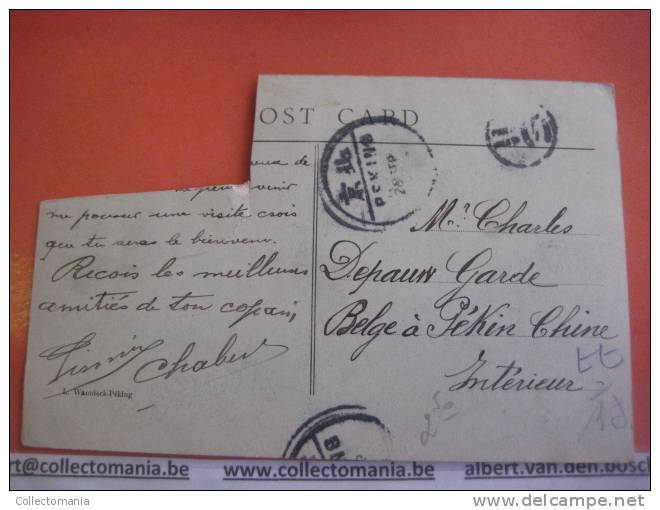 OST CARD
北京
PEKING
venir
me pousser une visite crois
que tu seras le bienvenu.
Reçois les meilleures
amitiés de ton copain,
Chabert
L. Wannieck-Péking
Mr Charles
Depauw Garde
Belge à Pékin Chine
Intérieur
2 50
rt@collectomania.be www.collectomania.be albert.van.den.bosch
Collectomania